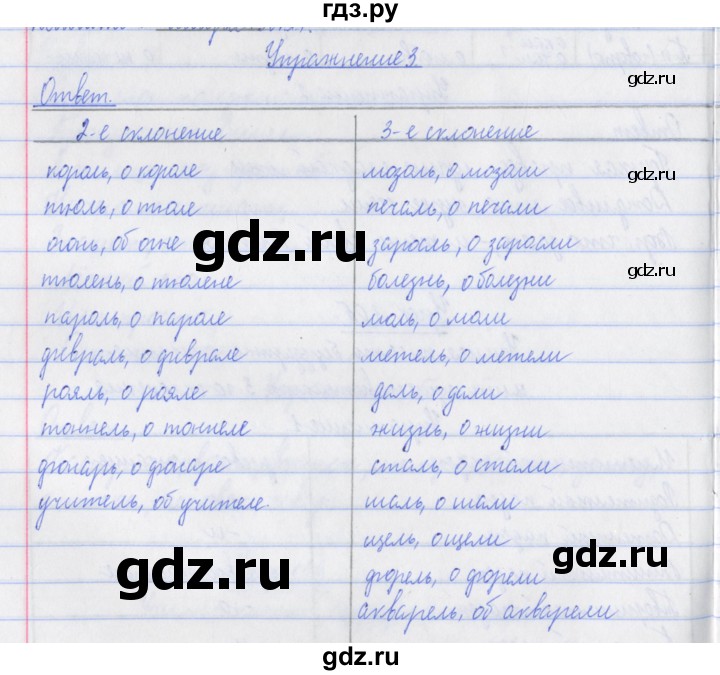 гдз.ру
Упражнение 3
gdz.ru
Ответ.
2-е склонение 3-е склонение
король, о короле мозоль, о мозоли
gdz.ru
тюль, о тюле печаль, о печали
огонь, об огне заросль, о заросли
gdz.ru
gdz.ru
тюлень, о тюлене болезнь, о болезни
пароль, о пароле моль, о моли
февраль, о феврале метель, о метели
рояль, о рояле даль, о дали
тоннель, о тоннеле жизнь, о жизни
фонарь, о фонаре сталь, о стали
учитель, об учителе шаль, о шали
щель, о щели
gdz.ru
gdz.ru
форель, о форели
акварель, об акварели
gdz.ru